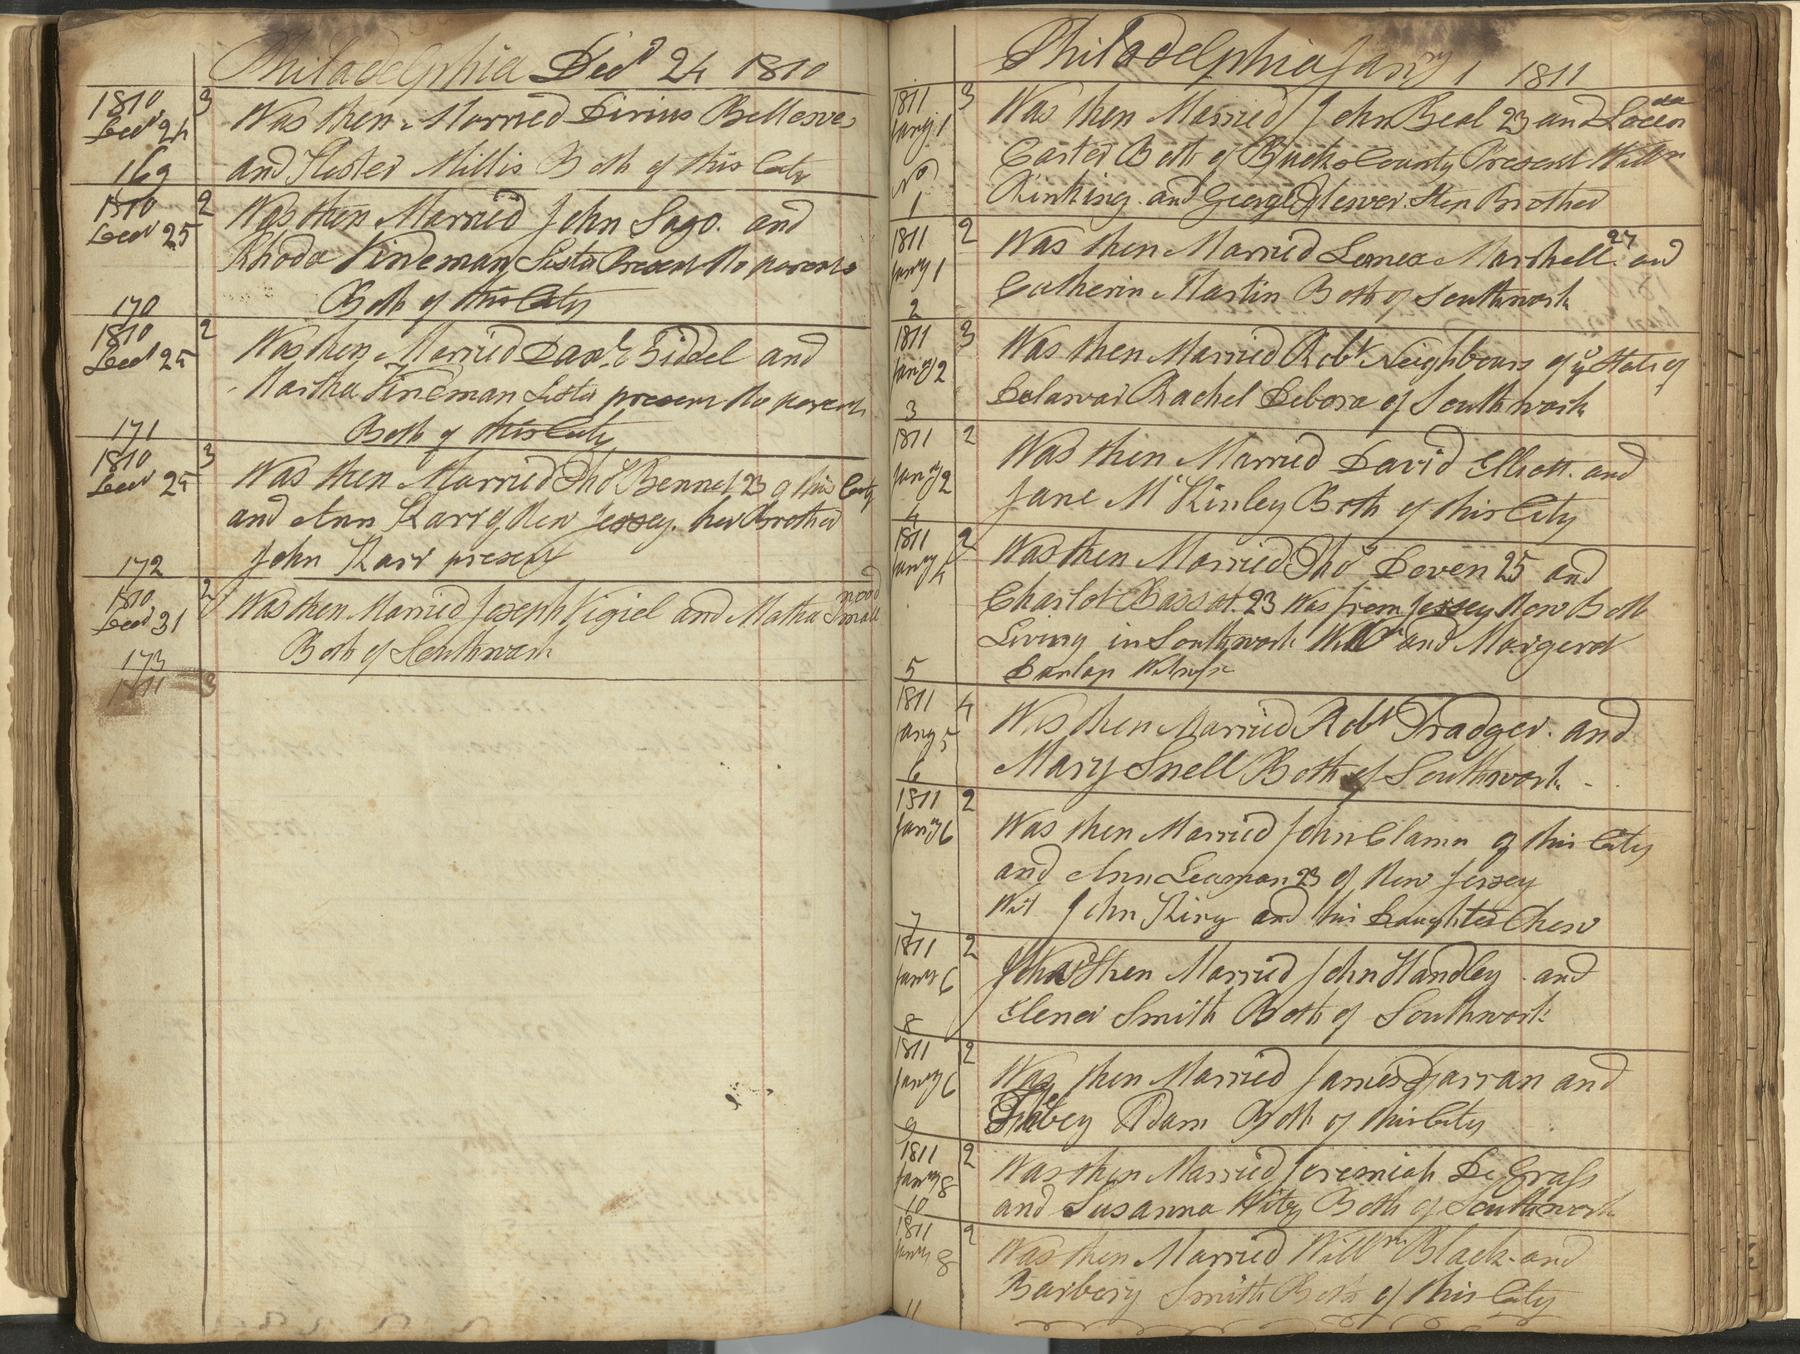 Philadelphia Decr 24 1810
1810 3 Was then Married Dirius Bellerve
Decr 24 and Hester Millis Both of this City
169
1810 2 Was then Married John Sago. and
Decr 25 Rhoda Vineman Sister Present No parents
170 Both of this City
1810 2 Was then Married Danl Siddel and
Decr 25 Martha Vineman Sister present No parents
171 Both of this City
1810 3 Was then Married Thos Bennet 23 of this City
Decr 25 and Ann Karr of New Jessey. her Brother
172 John Karr present
1810 2 Was then Married Joseph Vigiel and Matha Smallwood
Decr 31 Both of Southwark
173
1811 3
Philadelphia Jany 1 1811
1811 3 Was then Married John Beal 23 and
Jany 1 Carter Both of Bucks County Present Willm
No Rinking. and George Step Brother
1
1811 2 Was then Married Marshell 27 and
Jany 1 Catherin Martin Both of Southwark
2
1811 3 Was then Married Robt Neighbours of ye State of
Jany 2 Delawar Rachel Debora of Southwark
3
1811 2 Was then Married David Elliott. and
Jany 2 Jane McKinley Both of this City
4
1811 2 Was then Married Thos Deven 25 and
Jany 4 Charlot Bassot. 23 Was from Jessey Now Both
Living in Southwark Willm and Margeret
5 Dunlap Witness
1811 4 Was then Married Robt Tradger. and
Jany 5 Mary Snell Both of Southwark.
6
1811 2 Was then Married John Clamn of this City
Jany 6 and Ann Leaman 23 of New Jersey
7 Wit John King and his Daughter Chew
1811 2 Was Then Married John Handley. and
Jany 6 Elener Smith Both of Southwark
8
1811 2 Was then Married James Garran and
Jany 6 Adam Both of this City
9
1811 2 Was then Married Jeremiah De Grass
Jany 8 and Susanna Witey Both of Southwark
10
1811 2 Was then Married Willm Black. and
Jany 8 Barbery Smith Both of this City
11